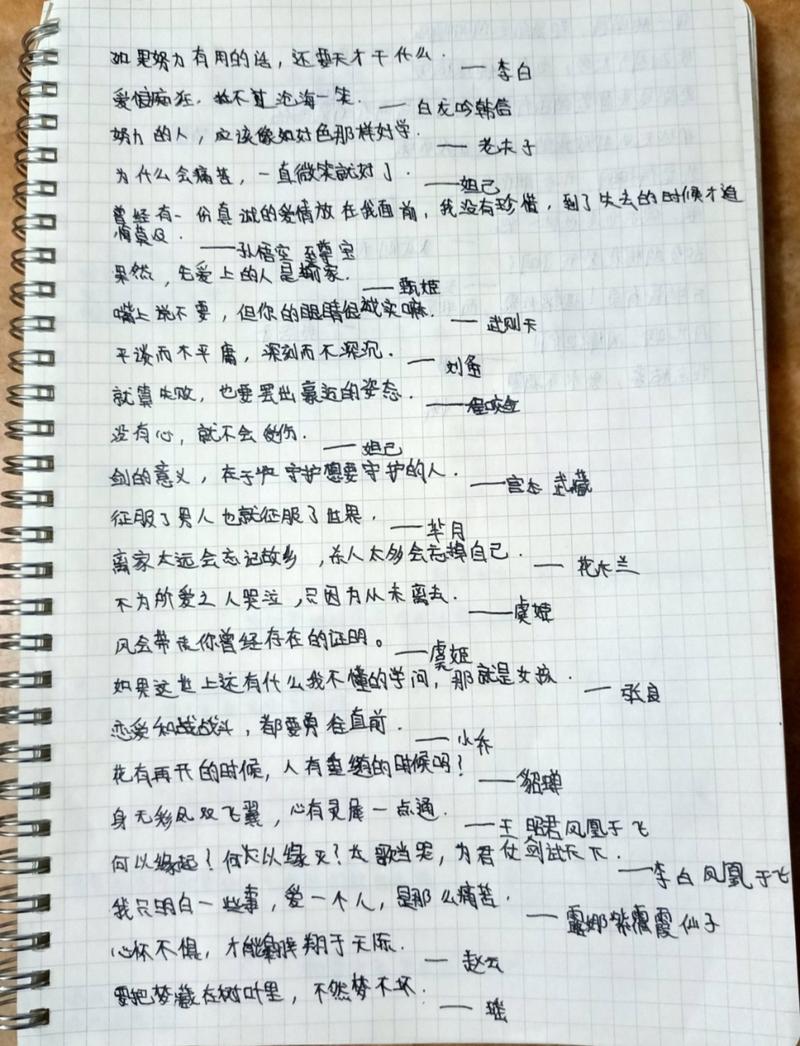 如果努力有用的话，还要天才干什么．——李白
爱恨痴狂．敌不过沧海一笑．——白龙吟韩信
努力的人，应该像如好色那样好学．——老夫子
为什么会痛苦，一直微笑就好了．——妲己
曾经有一份真诚的爱情放在我面前，我没有珍惜，到了失去的时候才追
悔莫及．——孙悟空 至尊宝
果然，先爱上的人是输家．——甄姬
嘴上说不要，但你的眼睛很诚实嘛．——武则天
平淡而不平庸，深刻而不深沉．——刘备
就算失败，也要摆出豪迈的姿态．——程咬金
没有心，就不会受伤．——妲己
剑的意义，在于守护想要守护的人．——宫本 武藏
征服了男人也就征服了世界．——芈月
离家太远会忘记故乡，杀人太多会忘掉自己．——花木兰
不为所爱之人哭泣，只因为从未离去．——虞姬
风会带走你曾经存在的证明。——虞姬
如果这世上还有什么我不懂的学问，那就是女孩．——张良
恋爱和战战斗，都要勇往直前．——小乔
花有再开的时候，人有重逢的时候吗？——貂蝉
身无彩凤双飞翼，心有灵犀一点通．——王昭君凤凰于飞
何以缘起？何以缘灭？长歌当哭，为君仗剑试天下．——李白凤凰于飞
我只明白一些事，爱一个人，是那么痛苦．——露娜紫霞仙子
心怀不惧，才能翱翔于天际．——赵云
要把梦藏在树叶里，不然梦不坏．——瑶